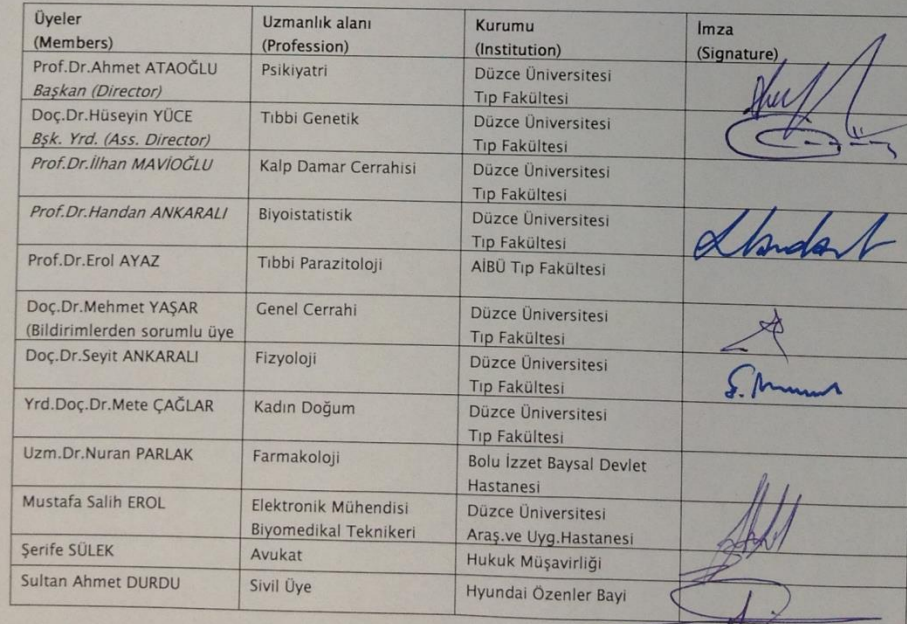 Üyeler
(Members)
Uzmanlık alanı
(Profession)
Kurumu
(Institution)
İmza
(Signature)
Prof.Dr.Ahmet ATAOĞLU
Başkan (Director)
Psikiyatri
Düzce Üniversitesi
Tıp Fakültesi
Doç.Dr.Hüseyin YÜCE
Bşk. Yrd. (Ass. Director)
Tıbbi Genetik
Düzce Üniversitesi
Tıp Fakültesi
Prof.Dr.İlhan MAVİOĞLU
Kalp Damar Cerrahisi
Düzce Üniversitesi
Tıp Fakültesi
Prof.Dr.Handan ANKARALI
Biyoistatistik
Düzce Üniversitesi
Tıp Fakültesi
Prof.Dr.Erol AYAZ
Tıbbi Parazitoloji
AİBÜ Tıp Fakültesi
Doç.Dr.Mehmet YAŞAR
(Bildirimlerden sorumlu üye
Genel Cerrahi
Düzce Üniversitesi
Tıp Fakültesi
Doç.Dr.Seyit ANKARALI
Fizyoloji
Düzce Üniversitesi
Tıp Fakültesi
Yrd.Doç.Dr.Mete ÇAĞLAR
Kadın Doğum
Düzce Üniversitesi
Tıp Fakültesi
Uzm.Dr.Nuran PARLAK
Farmakoloji
Bolu İzzet Baysal Devlet
Hastanesi
Mustafa Salih EROL
Elektronik Mühendisi
Biyomedikal Teknikeri
Düzce Üniversitesi
Araş.ve Uyg.Hastanesi
Şerife SÜLEK
Avukat
Hukuk Müşavirliği
Sultan Ahmet DURDU
Sivil Üye
Hyundai Özenler Bayi